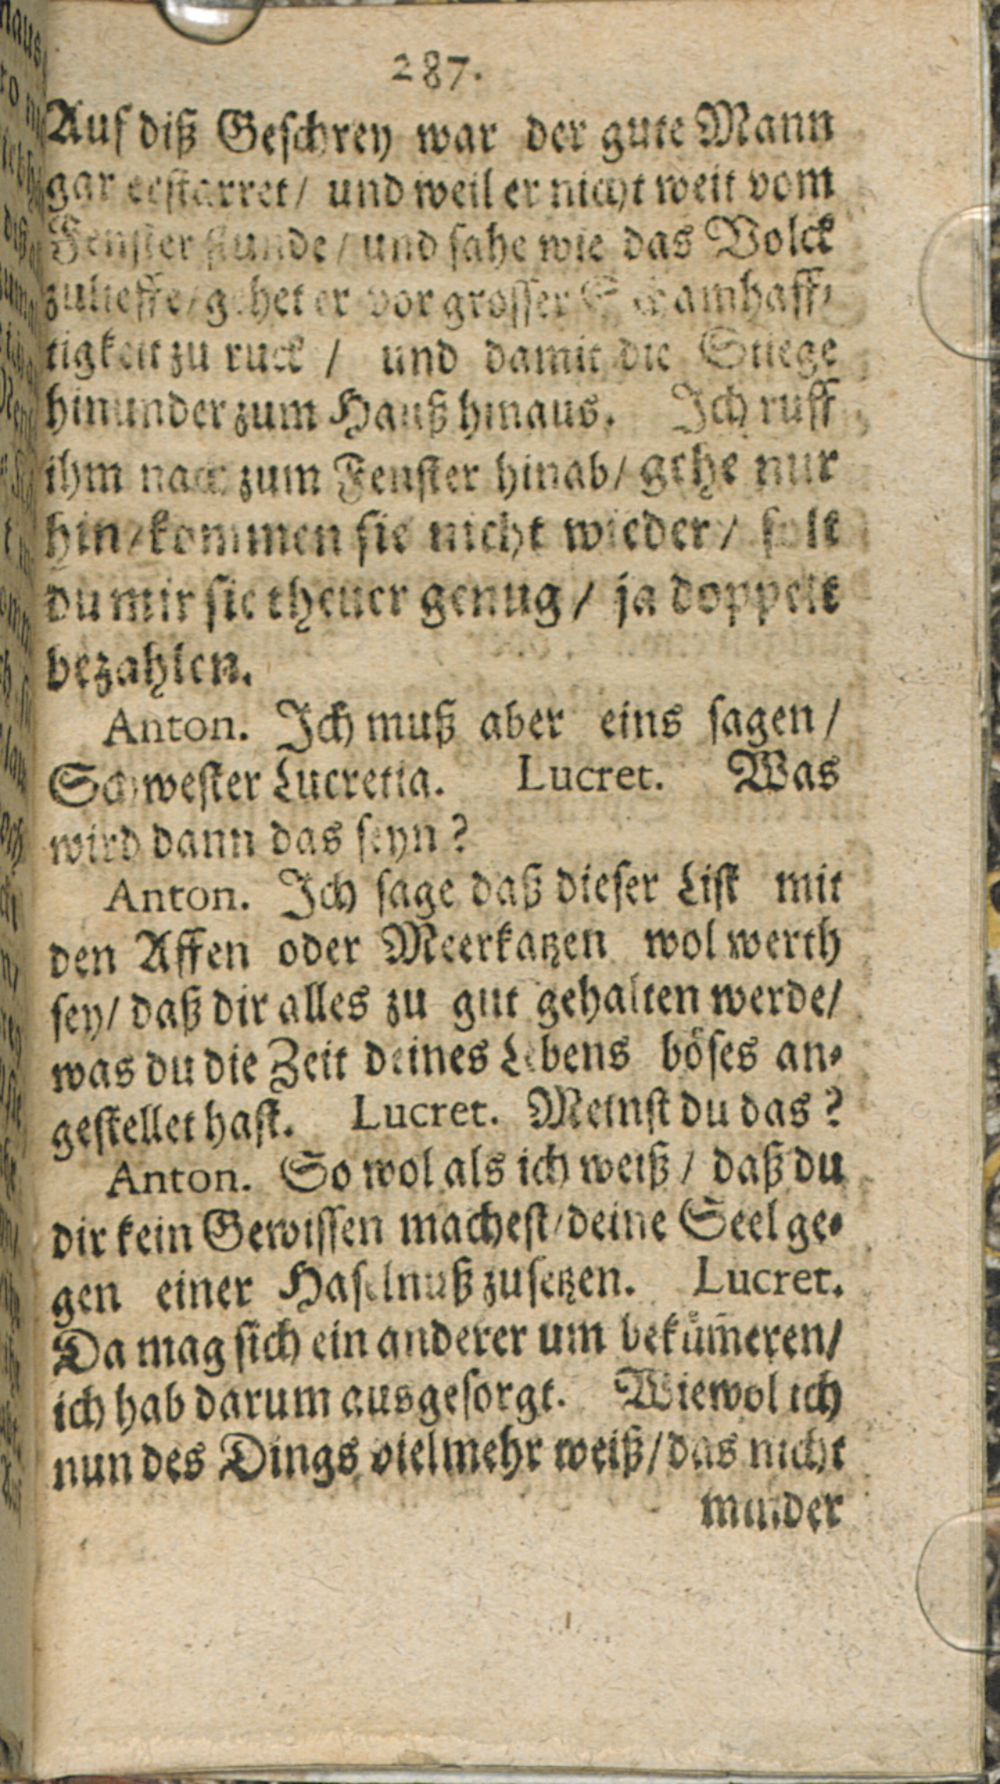 287.
Auf diß Geschrey war der gute Mann
gar erstarret / und weil er nicht weit vom
Fenster stunde / und sahe wie das Volck
zulieffe / gehet er vor grosser Schamhaff⸗
tigkeit zu ruck / und damit die Stiege
hinunder zum Hauß hinaus. Ich ruff
ihm nach zum Fenster hinab / gehe nur
hin / kommen sie nicht wieder / solt
du mir sie theuer genug / ja doppelt
bezahlen.
Anton. Ich muß aber eins sagen /
Schwester Lucretia. Lucret. Was
wird dann das seyn ?
Anton. Ich sage daß dieser List mit
den Affen oder Meerkatzen wol werth
sey / daß dir alles zu gut gehalten werde /
was du die Zeit deines Lebens böses an⸗
gestellet hast. Lucret. Meinst du das ?
Anton. So wol als ich weiß / daß du
dir kein Gewissen machest / deine Seel ge⸗
gen einer Haselnuß zusetzen. Lucret.
Da mag sich ein anderer um bekům̃eren /
ich hab darum ausgesorgt. Wiewol ich
nun des Dings vielmehr weiß / das nicht
minder